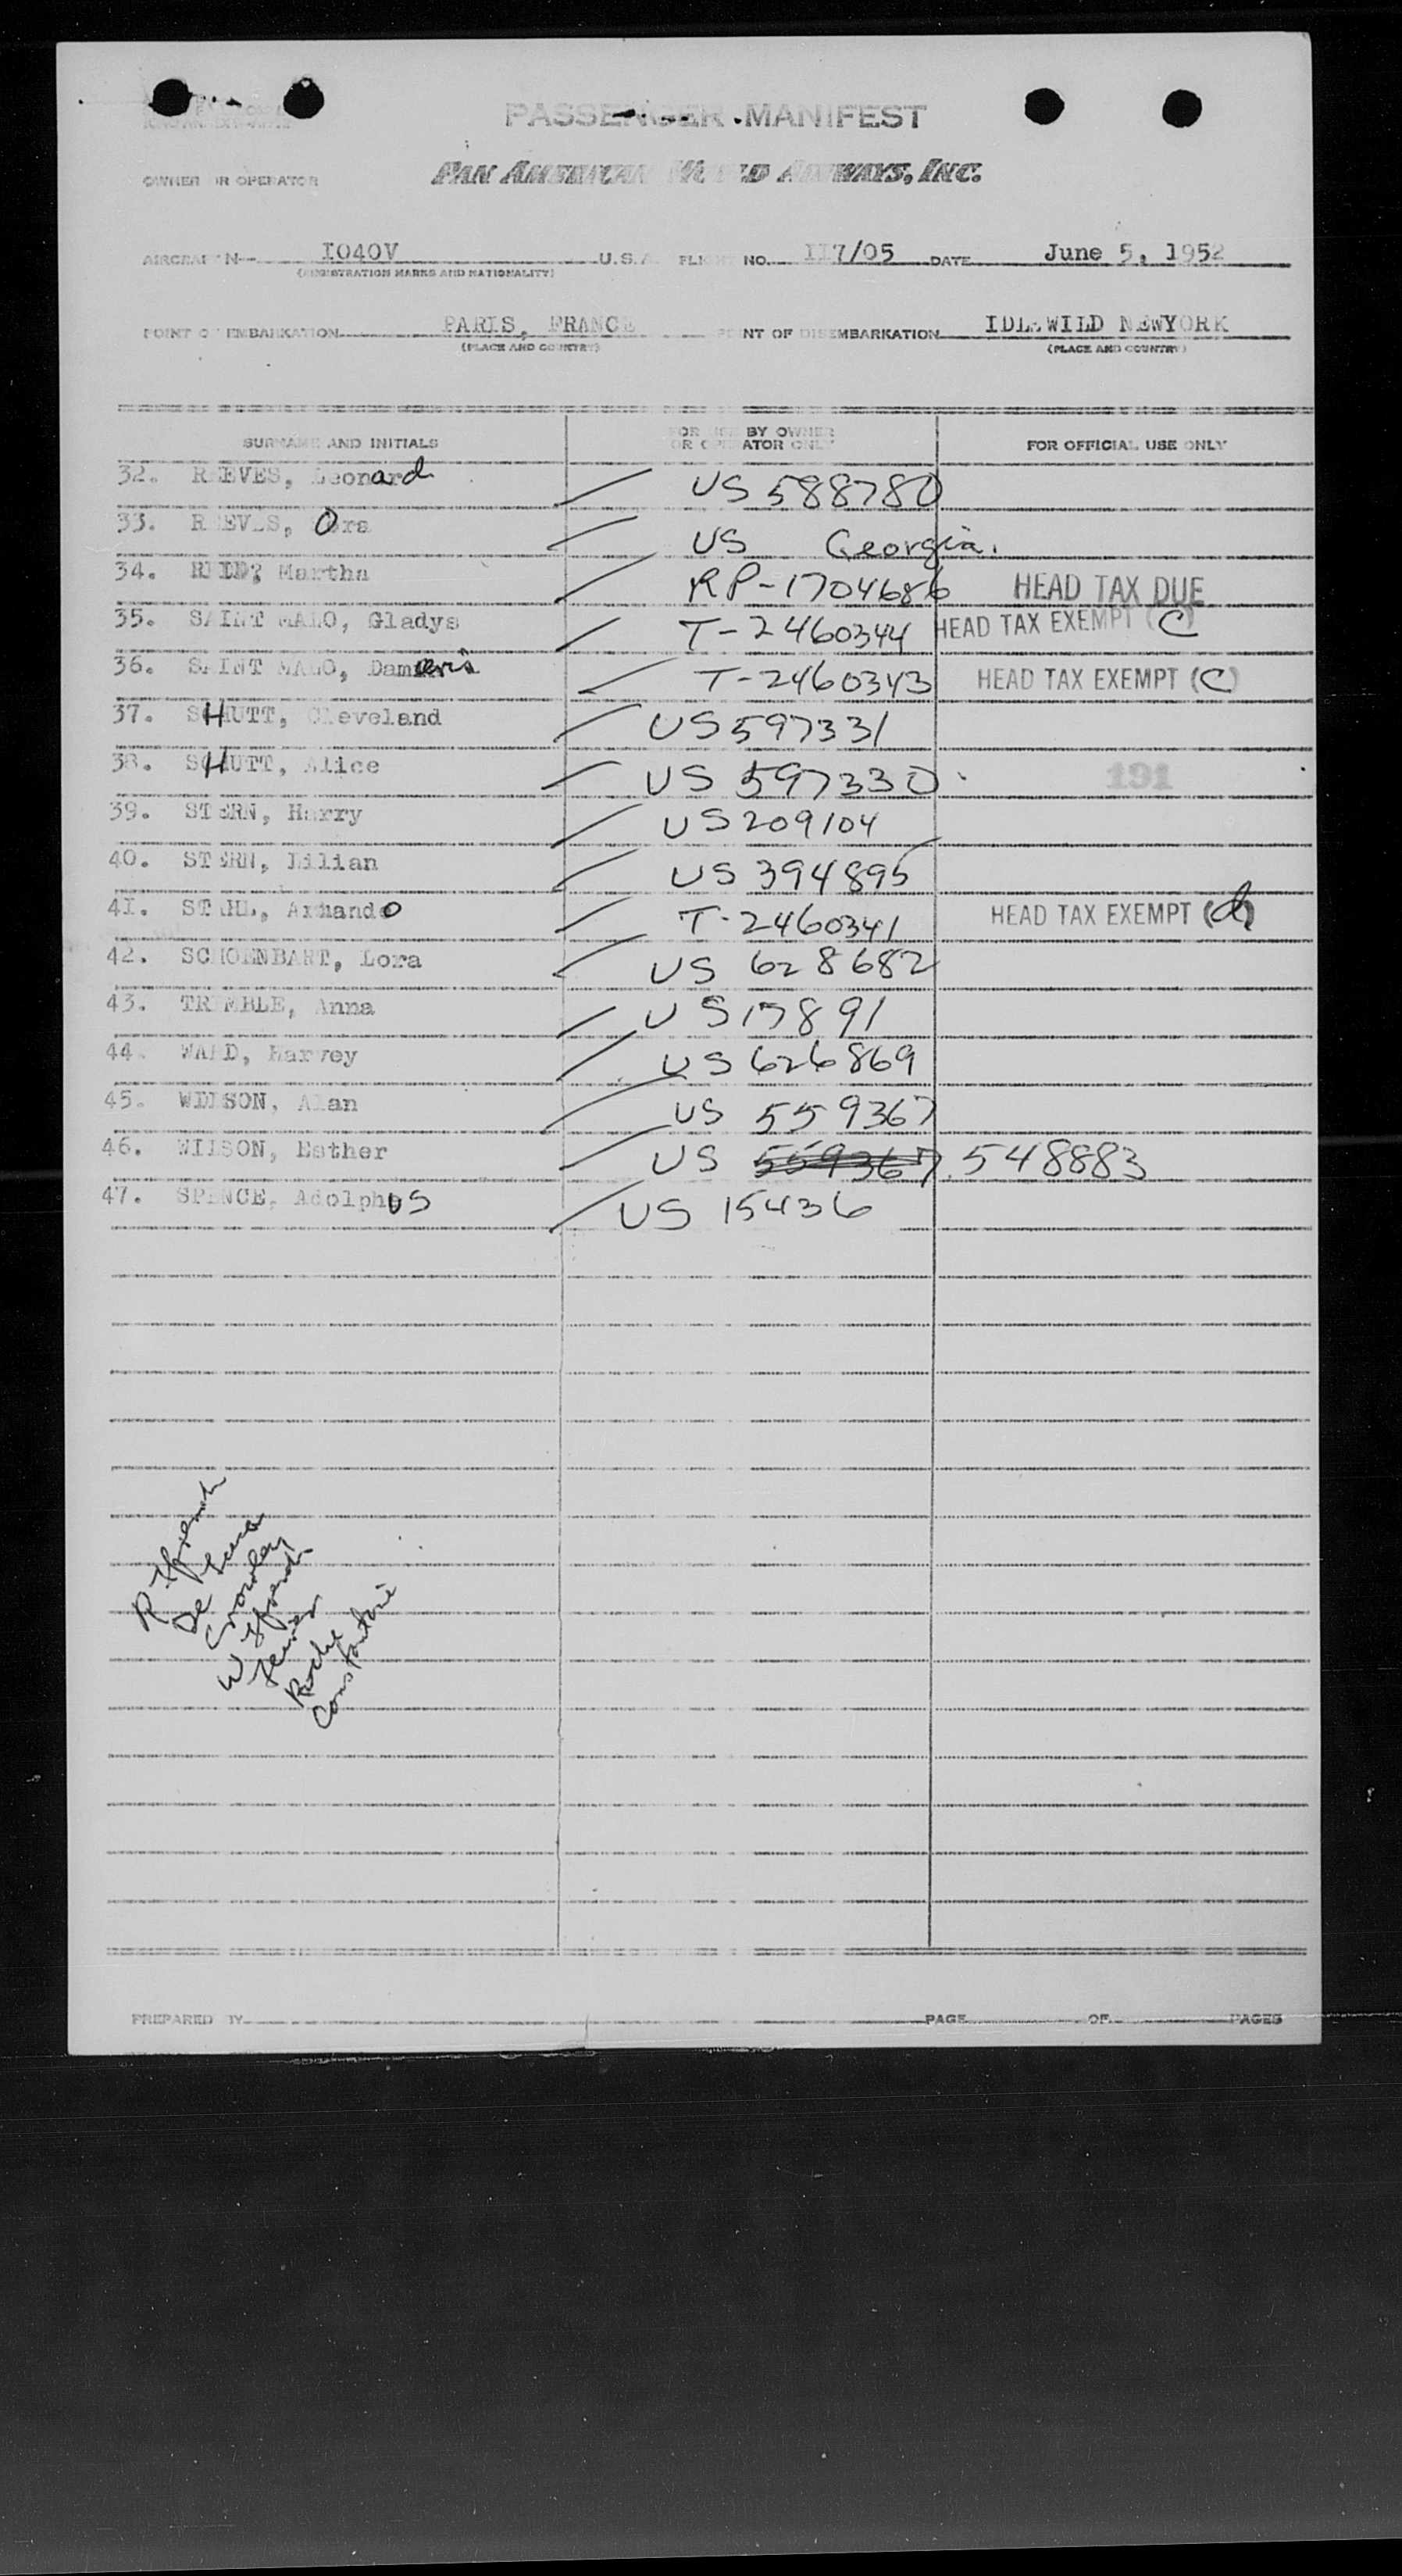 PASSENGER MANIFEST
OWNER OR OPERATOR PAN AMERICAN WORLD AIRWAYS, INC.
AIRCRAFT N-- 1040V U.S.A. FLIGHT NO. 117/05 DATE June 5, 1952
(REGISTRATION MARKS AND NATIONALITY)
POINT OF EMBARKATION PARIS, FRANCE POINT OF DISEMBARKATION IDLEWILD NEWYORK
(PLACE AND COUNTRY) (PLACE AND COUNTRY)
SURNAME AND INITIALS FOR USE BY OWNER OR OPERATOR ONLY FOR OFFICIAL USE ONLY
32. REEVES, Leonard US 588780
33. REEVES, Ora US Georgia.
34. Martha RP-1704686 HEAD TAX DUE
35. SAINT MALO, Gladys T-2460344 HEAD TAX EXEMPT (C)
36. SAINT MALO, Damaris T-2460343 HEAD TAX EXEMPT (C)
37. SHUTT, Cleveland US 597331
38. SHUTT, Alice US 597330 191
39. STERN, Harry US 209104
40. STERN, Lilian US 394895
41. STAHL, Armando T-2460341 HEAD TAX EXEMPT (d)
42. SCHOENBART, Lora US 628682
43. TRIMBLE, Anna US 17891
44. WARD, Harvey US 626869
45. WILSON, Alan US 559367
46. WILSON, Esther US 559367 548883
47. SPENCE, Adolphus US 15436
Crowley
Roche
Constantine
PREPARED BY PAGE OF PAGES